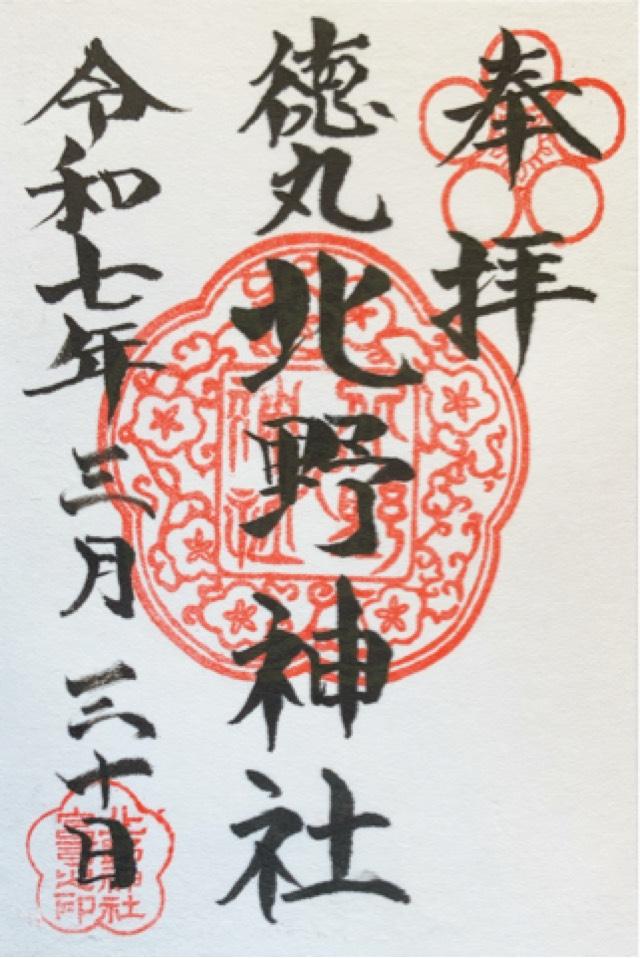 奉拝
徳丸北野神社
令和七年三月三十日
北野神社
宮司之印